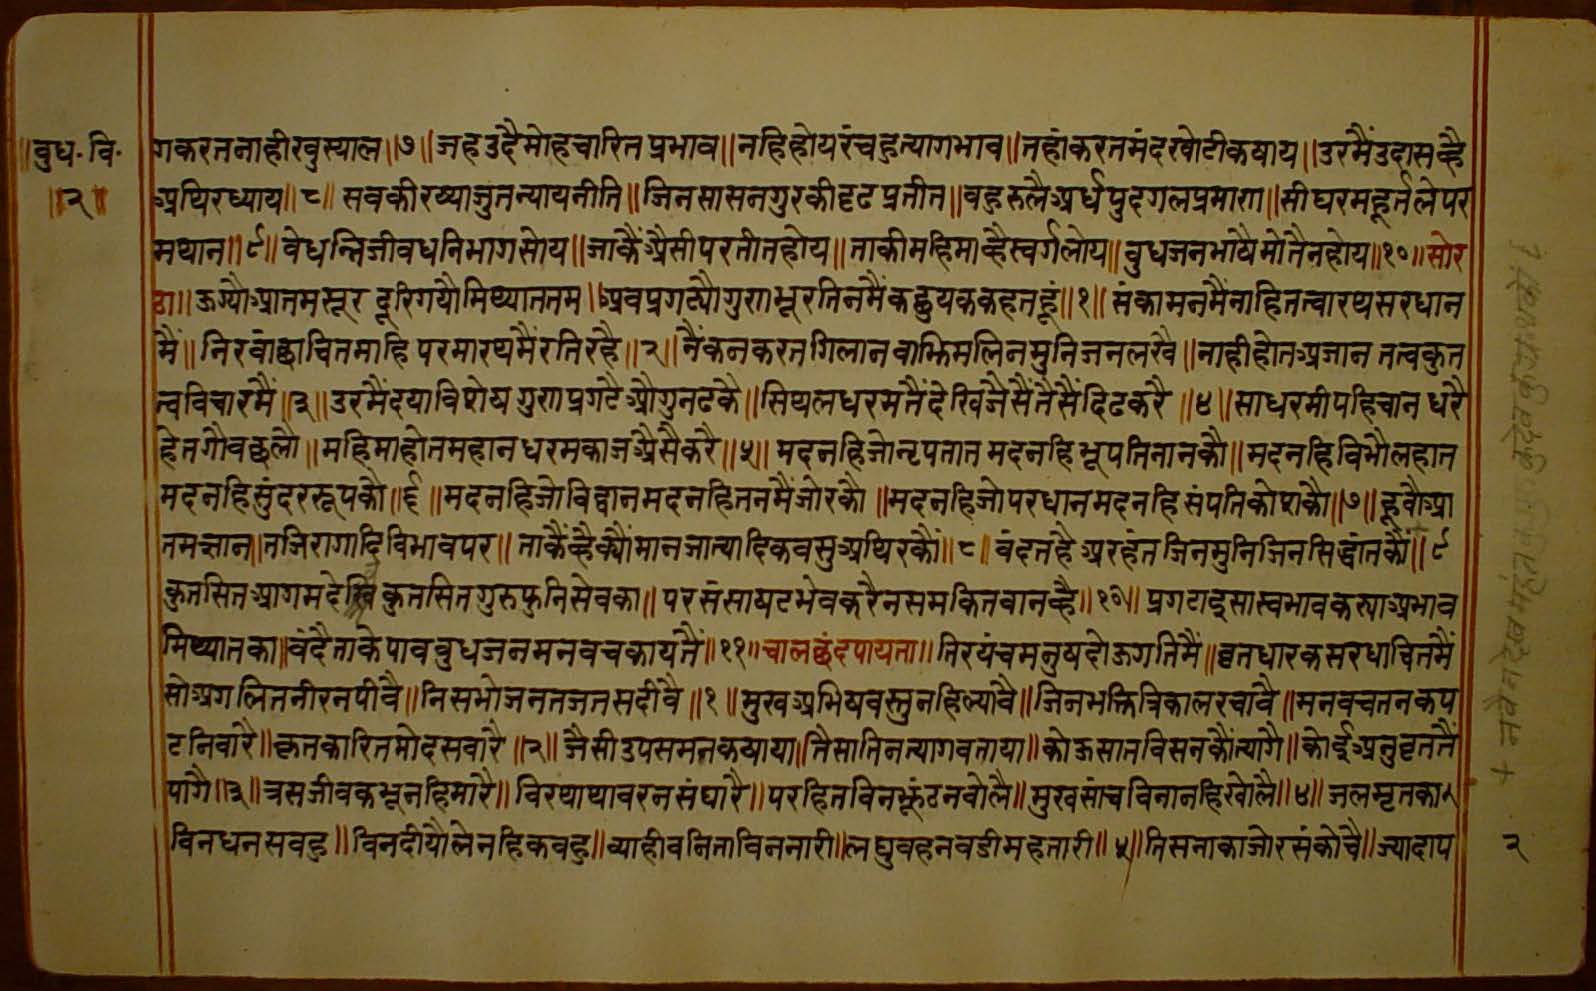 ॥बुध॰वि॰
॥२॥
गकरतनाहीखुस्याल॥७॥जहउदैमोहचारितप्रभाव॥नहिहोयरंचहुत्यागभाव॥तहांकरतमंदखोटीकषाय॥उरमैंउदासव्है
अथिरध्याय॥८॥सवकीरथ्याजुतन्यायनीति॥जिनसासनगुरकीदृढप्रतीत॥वहुरुलैअर्धपुदगलप्रमाण॥सीघरमहूर्तलेपर
मथान॥९॥वेधन्निजीवधनिभागसोय॥जाकैंअैसीपरतीतहोय॥ताकीमहिमाव्हैस्वर्गलोय॥वुधजनभाषैमोतैनहोय॥१०॥सोर
ठा॥ऊग्यौआतमसूर दूरिगयौमिथ्याततम॥अवप्रगट्यौगुणभूरतिनमैंकछुयककहतहूं॥१॥संकामनमैंनाहितत्वारथसरधान
मैं॥निरवांछाचितमाहि परमारथमैंरतिरहै॥२॥नैंकनकरतगिलानवाझिमलिनमुनिजनलखै॥नाहीहोतअजान तत्वकुत
त्वविचारमैं॥३॥उरमैंदयाविशेष गुणप्रगटैऔगुनढकै॥सिथलधरमतैंदेखिजैसैंतैसैंदिढकरै॥४॥साधरमीपहिचान धरै
हेतगौवछलौ॥महिमाहोतमहान धरमकाजअैसैकरै॥५॥मदनहिजोनृपतात मदनहिभूपतितानकौ॥मदनहिविभौलहात
मदनहिसुंदररूपकौ॥६॥मदनहिजोविद्वानमदनहितनमैंजोरकौ॥मदनहिजोपरधानमदनहिसंपतिकोशकौ॥७॥हूवौआ
तमज्ञान॥तजिरागादिविभावपर॥ताकैंव्हैक्यौंमानजात्यादिकवसुअथिरकौं॥८॥वंदतहैअरहंतजिनमुनिजिनसिद्धांतकौं॥९
कुतसितआगमदेव कुतसितगुरुफुनिसेवका॥परसंसाषटभेवकरैनसमकितवानव्है॥१०॥प्रगटाइसास्वभावकर्‍याअभाव
मिथ्यातका॥वंदैताकेपाववुधजनमनवचकायतैं॥११॥चालछंदपायता॥तिरयंचमनुषदोऊगतिमैं॥व्रतधारकसरधाचितमैं
सोअगलितनीरनपीवै॥निसभोजनतजतसदीवै॥१॥मुखअभिषवस्तुनहिल्यावै॥जिनभक्तित्रिकालरचावै॥मनवचतनकप
टनिवारै॥कृतकारितमोदसवारै॥२॥जैसीउपसमतकषाया॥तैसातिनत्यागवताया॥कोऊसातविसनकौंत्यागै॥कोईअनुवृततैं
पागै॥३॥त्रसजीवकभूनहिमारै॥विरथाथावरनसंघारै॥परहितविनझूंठनवोलै॥मुखसांचविनानहिखोलै॥४॥जलमृतका
विनधनसवहु॥विनदीयौलेनहिकवहु॥व्याहीवनिताविननारी॥लघुवहनवडीमहतारी॥५॥तिसनाकाजोरसंकोचै॥ज्यादाप
२